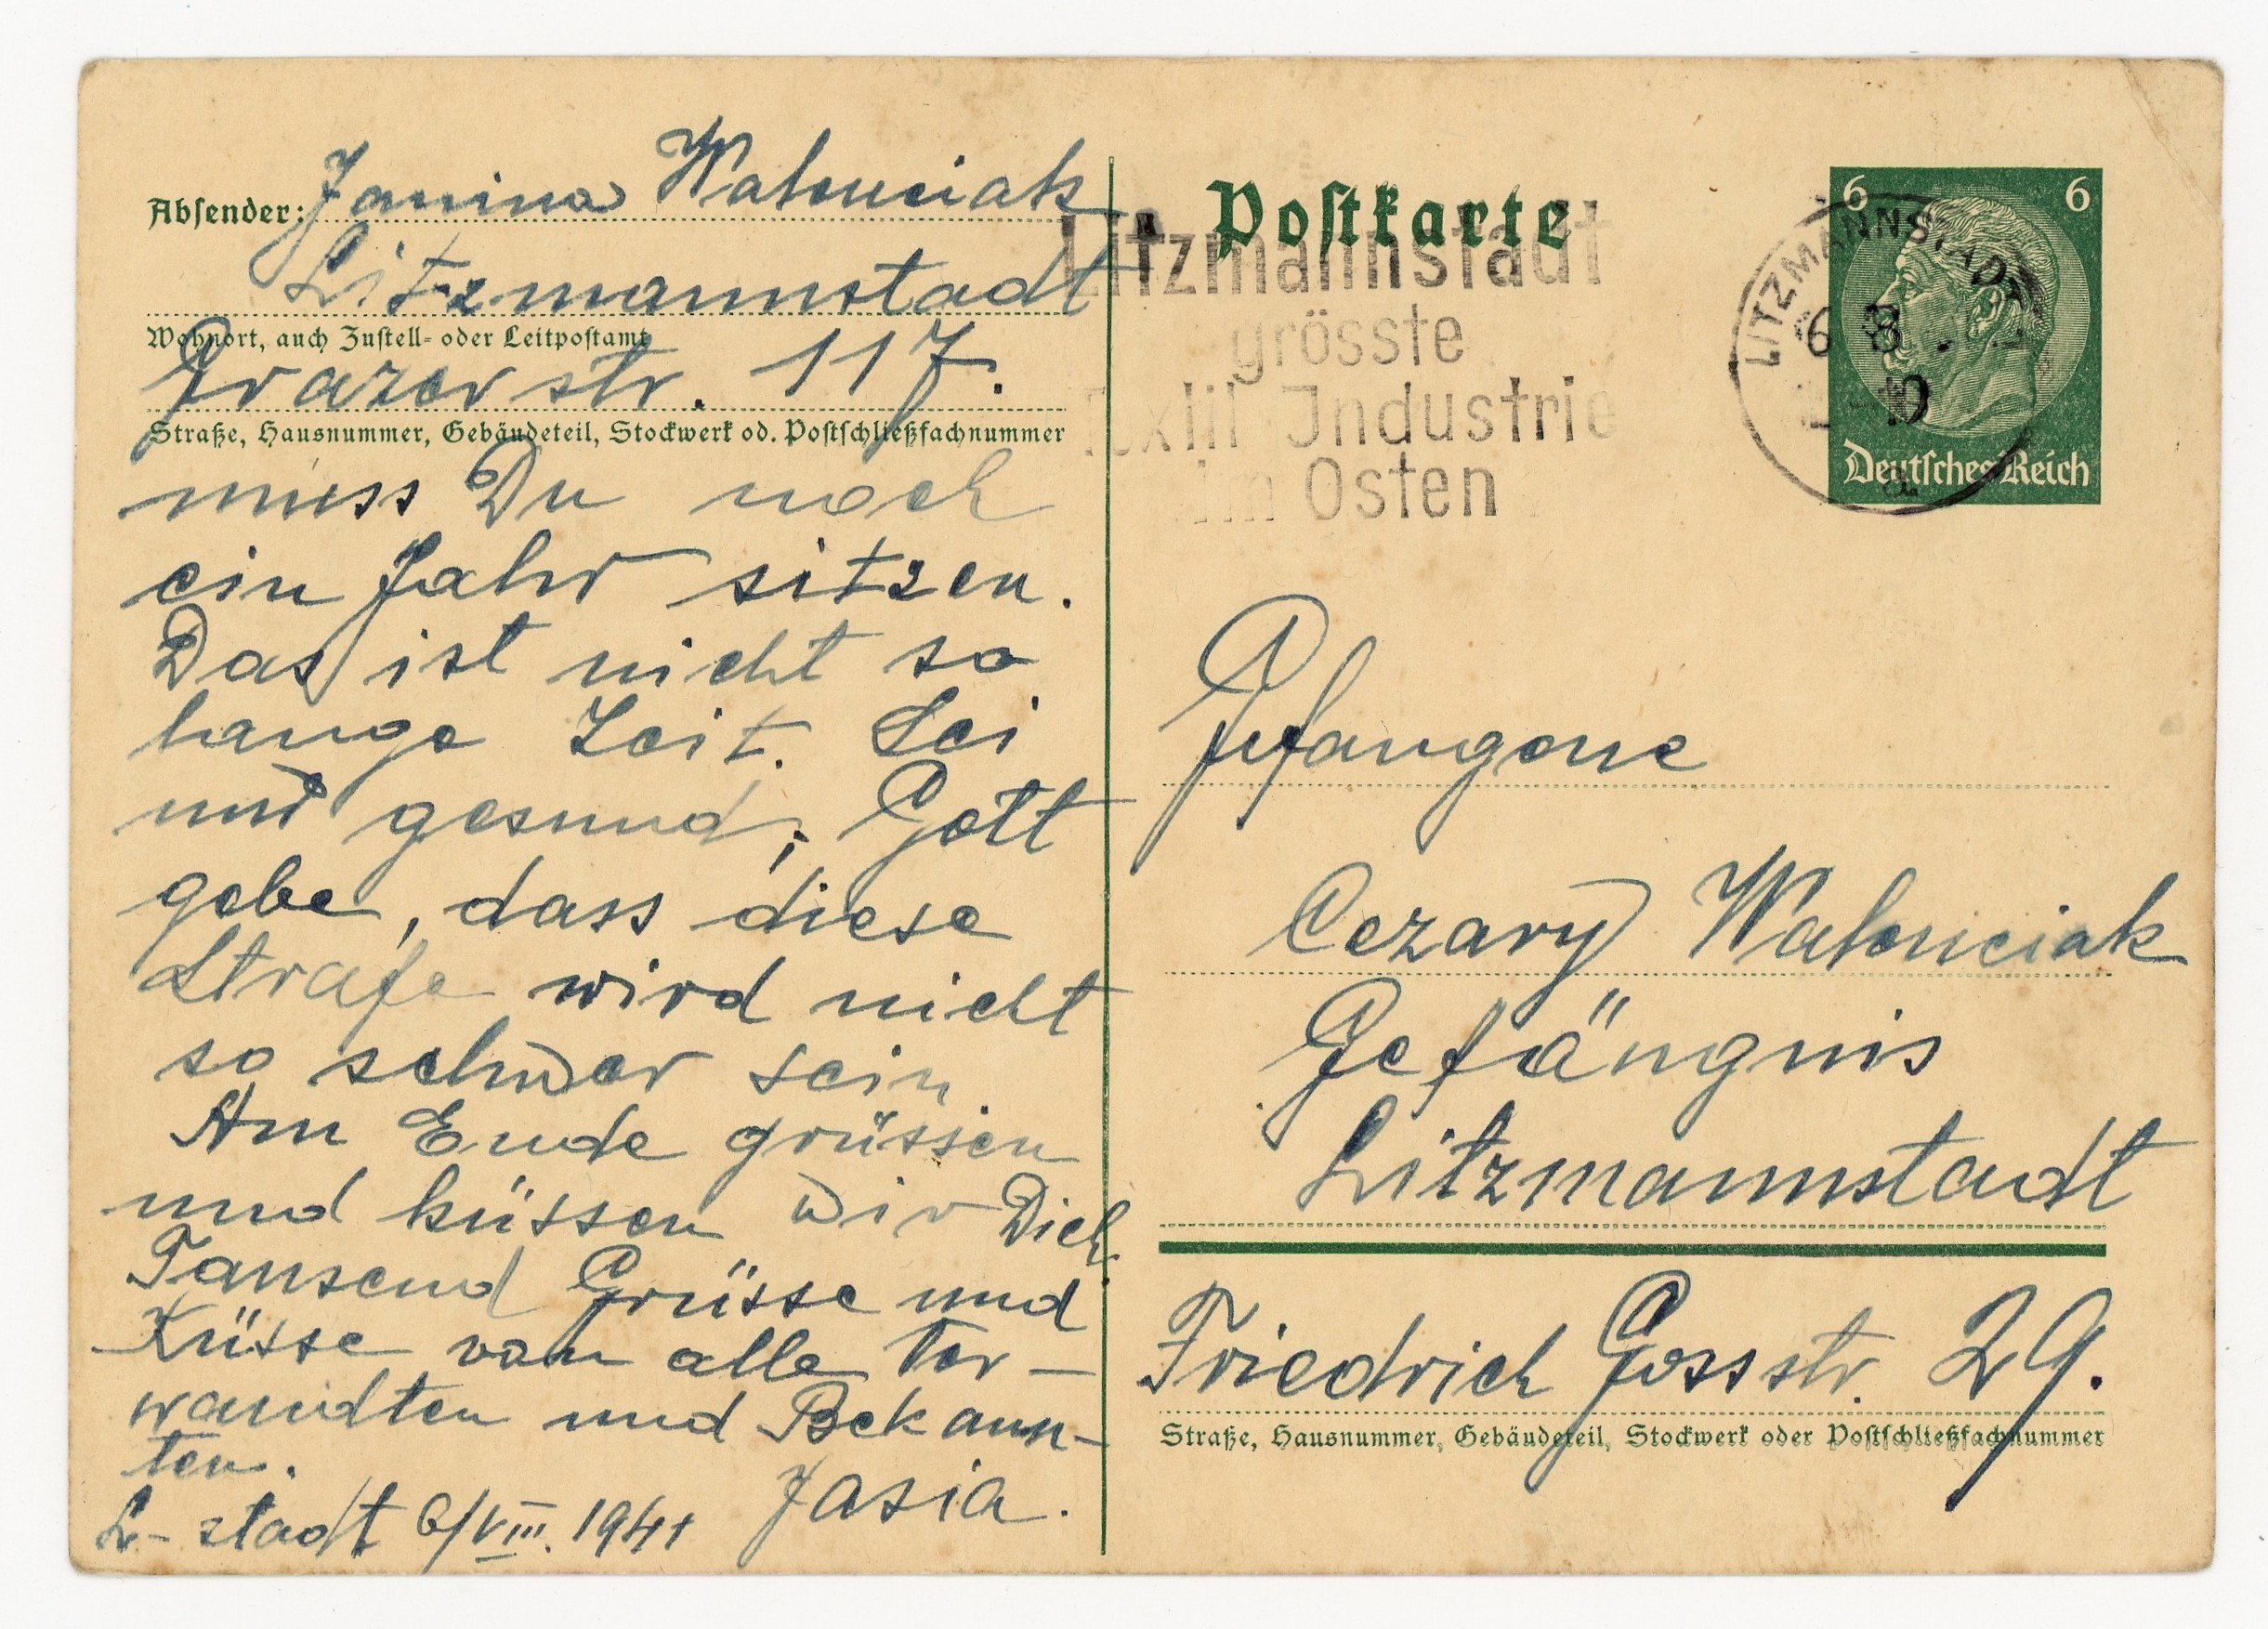 Absender: Janina Walenciak
Litzmannstadt
Wohnort, auch Zustell- oder Leitpostamt
Grazer str. 117.
Straße, Hausnummer, Gebäudeteil, Stockwerk od. Postschließfachnummer
muss Du noch
ein Jahr sitzen.
Das ist nicht so
lange Zeit. Sei
und gesund, Gott
gebe, dass diese
Strafe wird nicht
so schwer sein
Am Ende grüssen
und küssen wir Dich.
Tausend Grüsse und
Küsse von alle Ver-
wandten und Bekann-
ten.
Jasia.
L-stadt 6/VIII. 1941
Postkarte
Litzmannstadt
grösste
Textil Industrie
im Osten
LITZMANNSTADT
6 8
10
6 6
Deutsches Reich
Gefangene
Cezary Walenciak
Gefängnis
Litzmannstadt
Friedrich Gossstr. 29.
Straße, Hausnummer, Gebäudeteil, Stockwerk oder Postschließfachnummer